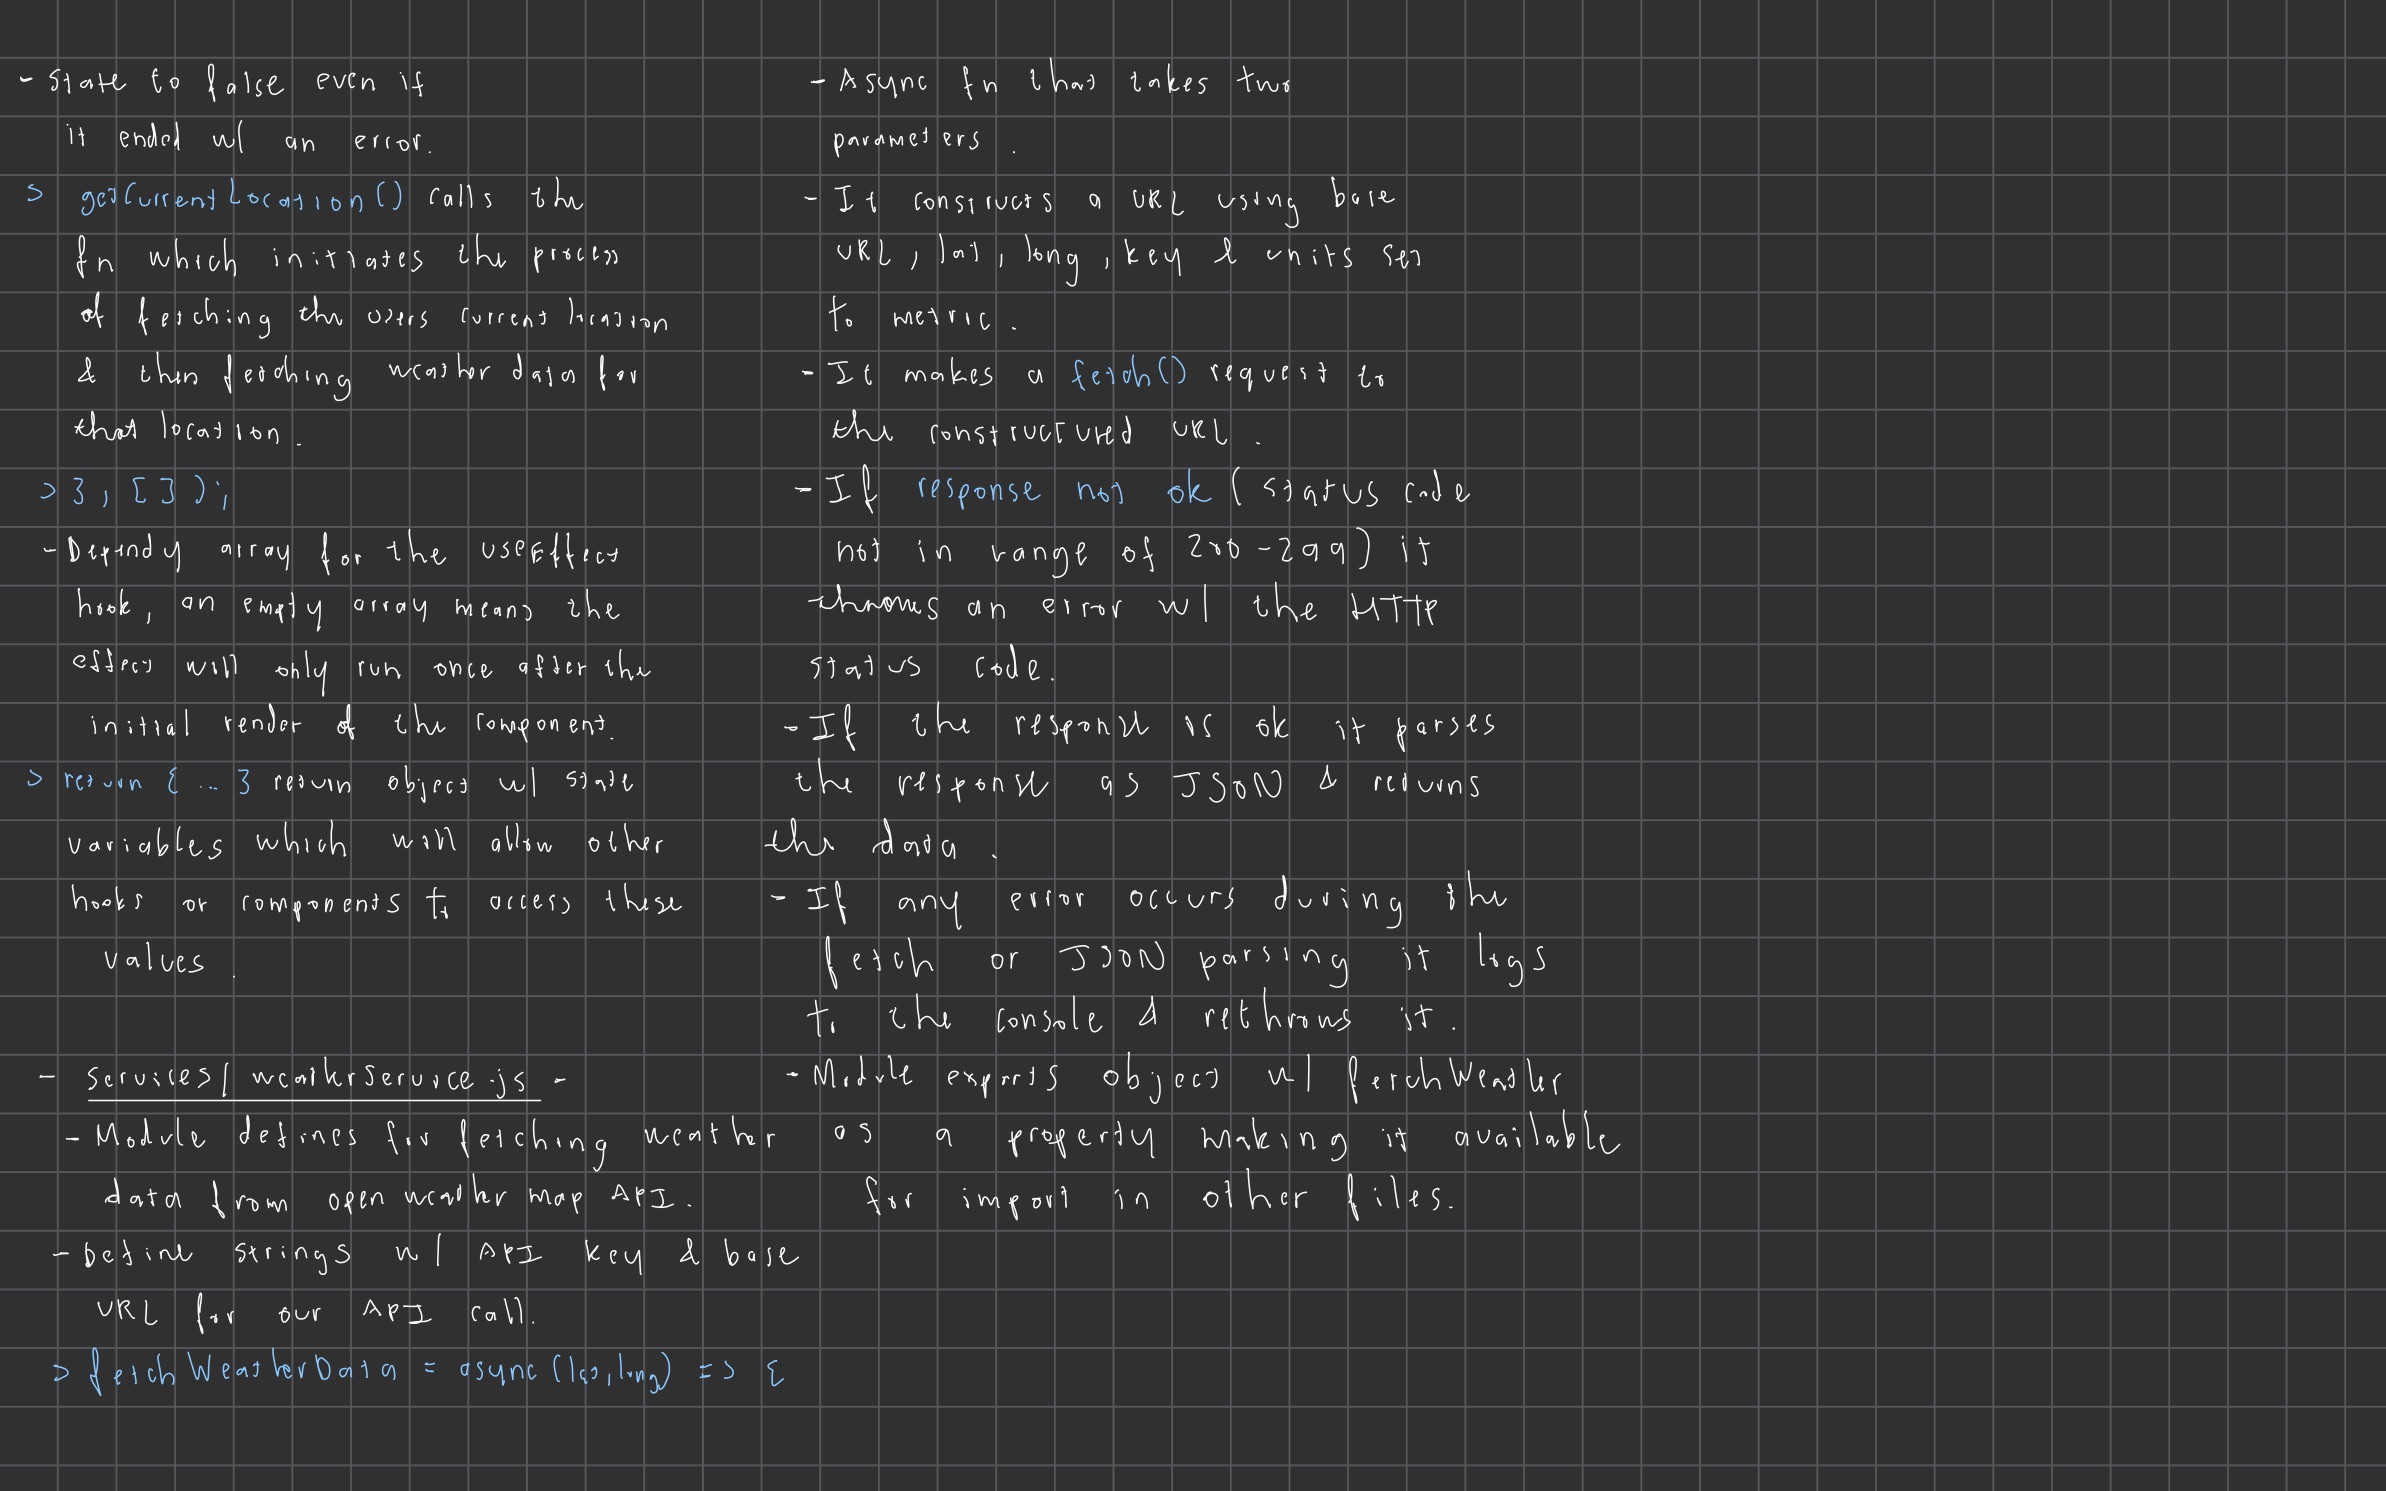 - State to false even if
it ended w/ an error.
> getCurrentLocation() calls the
fn which initiates the process
of fetching the users current location
& then fetching weather data for
that location.
> } , [ ] ) ;
- Dependy array for the useEffect
hook, an empty array means the
effect will only run once after the
initial render of the component.
> return { ... } return object w/ state
variables which will allow other
hooks or components to access these
values.
- services/weatherService.js -
- Module defines for fetching weather
data from open weather map API.
- Define strings w/ API key & base
URL for our API call.
> fetchWeatherData = async (lat, long) => {
- Async fn that takes two
parameters.
- It constructs a URL using base
URL, lat, long, key & units set
to metric.
- It makes a fetch() request to
the constructured URL.
- If response not ok ( status code
not in range of 200-299) it
throws an error w/ the HTTP
status code.
- If the response is ok it parses
the response as JSON & returns
the data.
- If any error occurs during the
fetch or JSON parsing it logs
to the console & rethrows it.
- Module exports object w/ fetchWeather
as a property making it available
for import in other files.